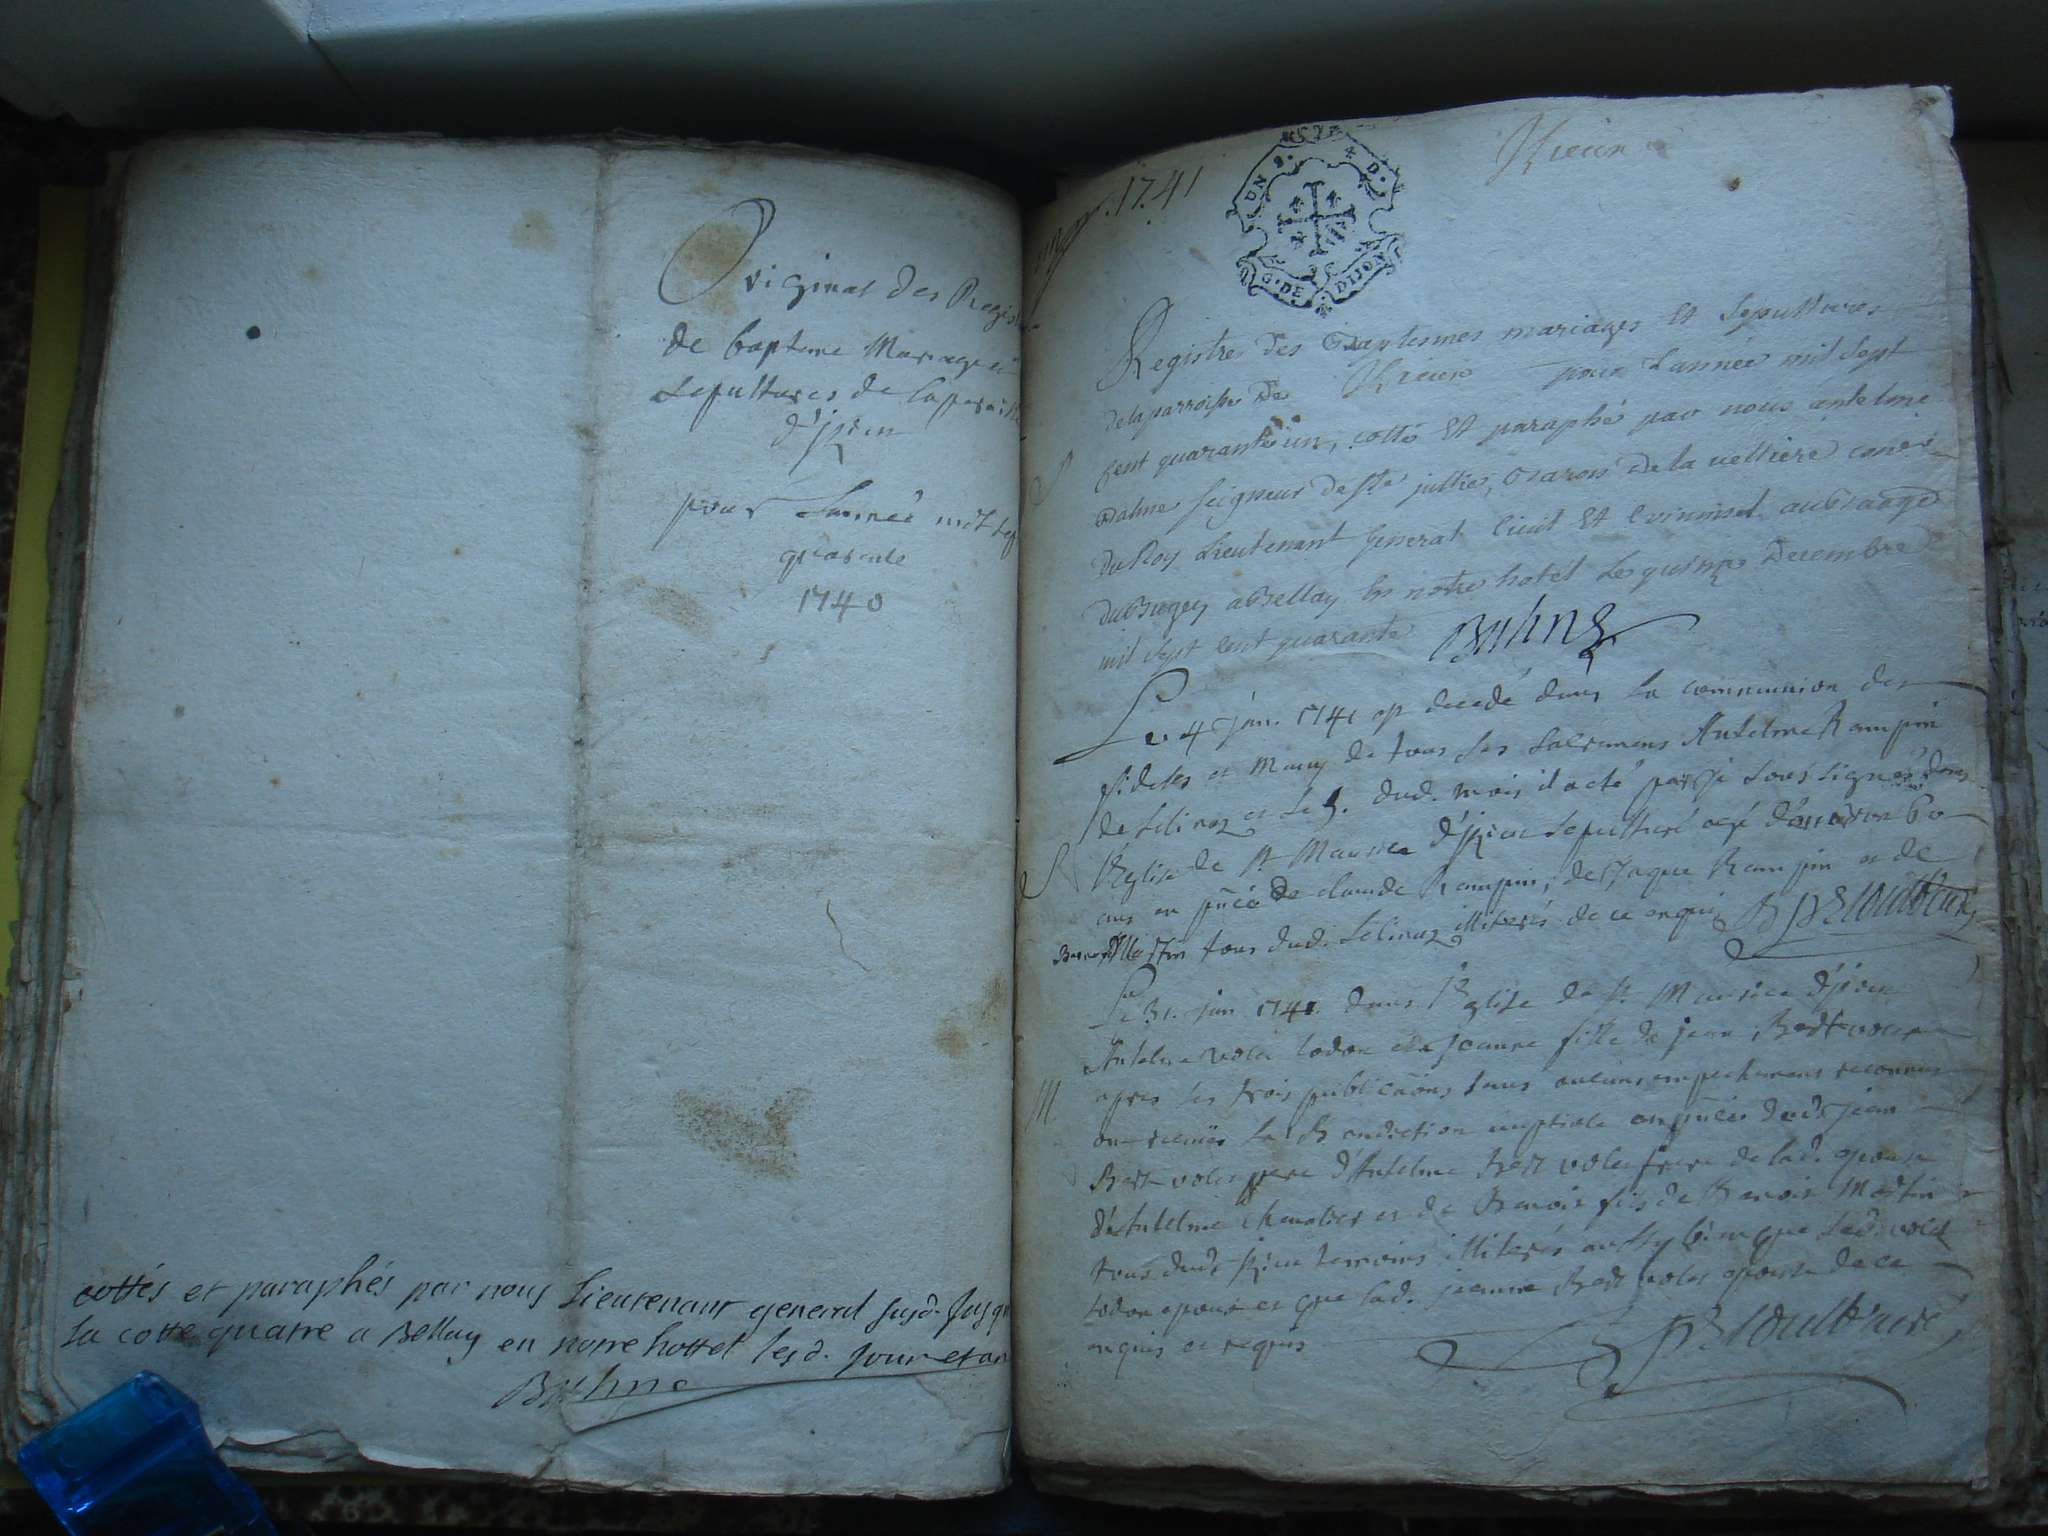 Original des Regis
de bapteme Mariage et
sepultures de la paroiss
d'jzieu
pour lannée mil sep
quarente
1740
cottés et paraphés par nous Lieutenant general susd. jusqu
la cotte quatre a Bellay en notre hottel lesd. jour et an
Balme
1741
UN S. D.
G. DE DIJON
Yzieu
Registres des Baptesmes mariages et Sepultures
de la parroisse de Yzieu pour l'année mil sept
cent quarante un, cotté et paraphé par nous antelme
Balme Seigneur de Ste jullie, Baron de la velliere conser
du Roy Lieutenant general civil et criminel au Bailliage
du Bugey a Bellay en notre hotel le quinze Decembre
mil sept cent quarante Balme
Le 4 jan. 1741 est decedé dans la communion des
S fideles et muny de tous ses sacremens Antelme Rampin
de Selinaz et le 5. dud. mois il a eté par je soussigné dans
l'Eglise de St Maurice d'jzieu sepulturé agé d'environ 60
ans en pnce de claude Rampin, de Jaque Rampin et de
Benoit Martin tous dud. Selinaz illiterés de ce enquis
Le 31. jan 1741. dans l'Eglise de St Maurice d'jzieu
Antelme volet lodon et jeanne fille de jean Bert volet
M apres les trois publicaons sans aucuns empechemens reconnus
ont receues la Benediction nuptiale en pnces dud. jean
Bert volet pere d'Antelme Bert volet frere de lad. epouse
d'Antelme chevalier et de Benoit fils de Benoit Martin
tous dud. jzieu temoins illiterés aussy bien que led. volet
lodon epoux et que lad. jeanne Bert volet epouse de ce
enquis et requis